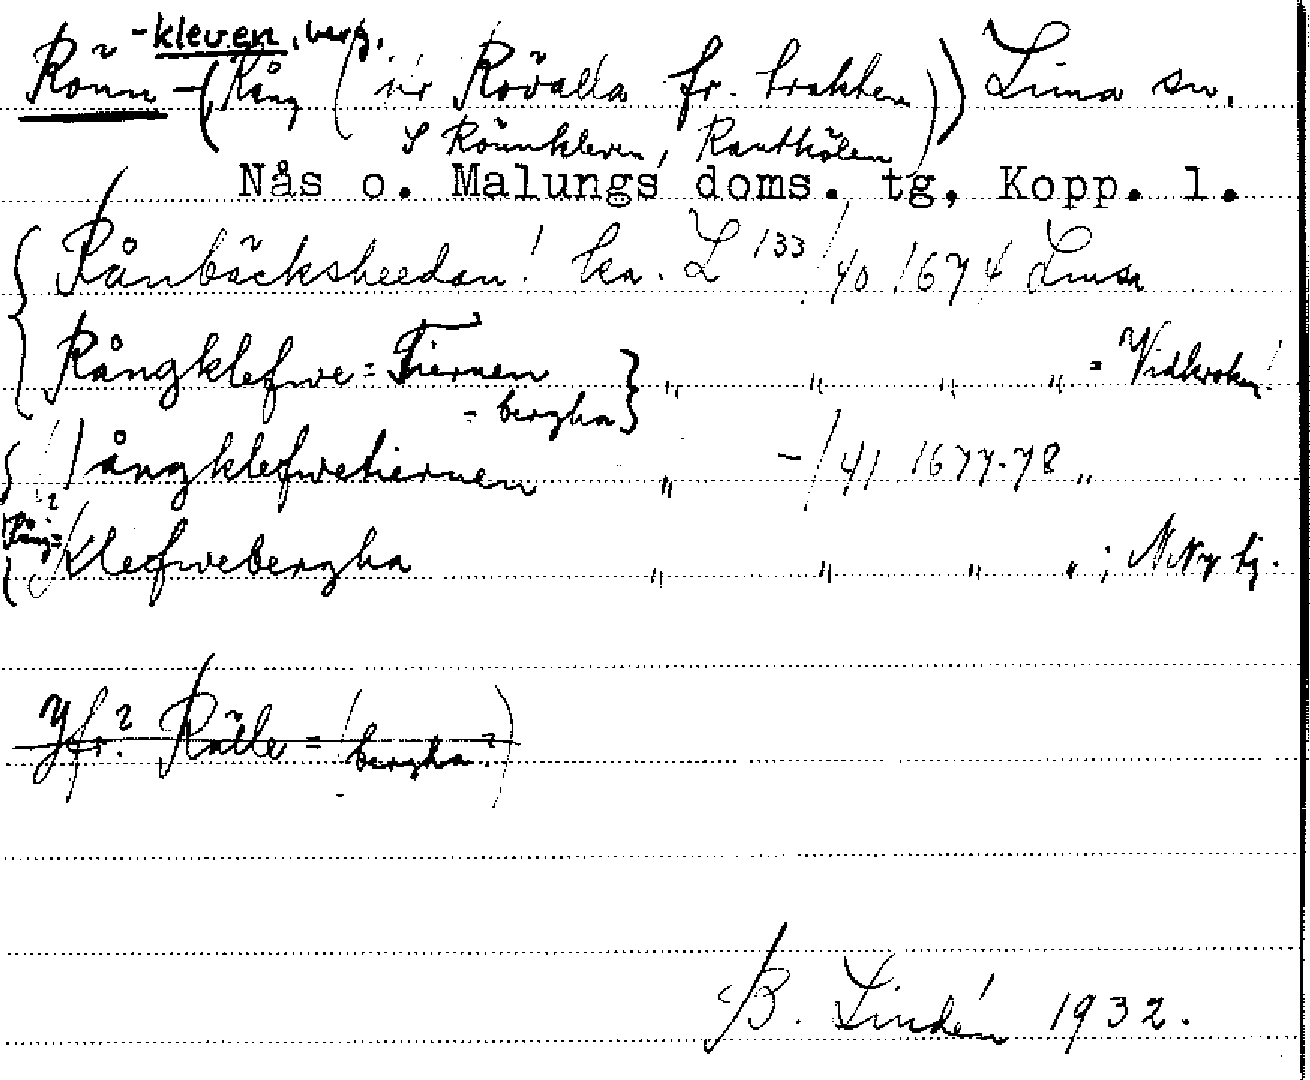 -kleven, berg,
Rönn - (Rång ( är Rövalla fr. trakten )) Lima sn.
S Rönnkleven, Rautkölen
Nås o. Malungs doms. tg, Kopp. l.
Rånbäcksheedan! ka. L 133/40 1674 Lima
Rångklefwe = Tiernen } " " " " = Vidkroken!
- bergha
ångklefwetiernen " -/41 1677-78 "
Rång= Klefwebergha " " " " ; N. Ny tg.
Jfr? Rälle = ( bergha? )
B. Lindén 1932.